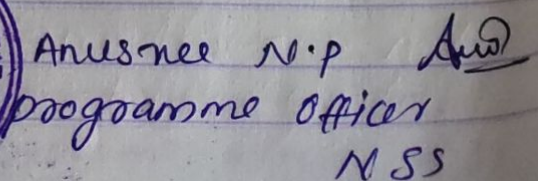 Anusree N.P
programme Officer
NSS